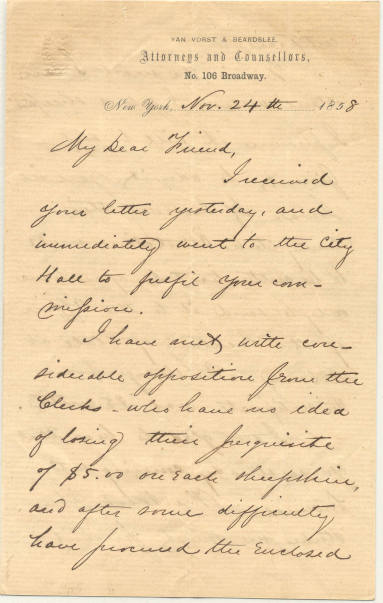 VAN VORST & BEARDSLEE,
Attorneys and Counsellors,
No. 106 Broadway.
New York, Nov. 24th 1858
My Dear Friend,
I received
your letter yesterday, and
immediately went to the City
Hall to fulfil your com-
mission.
I have met with con-
siderable opposition from the
Clerks - who have no idea
of losing their perquisite
of $5.00 on each sheepskin,
and after some difficulty
have procured the enclosed